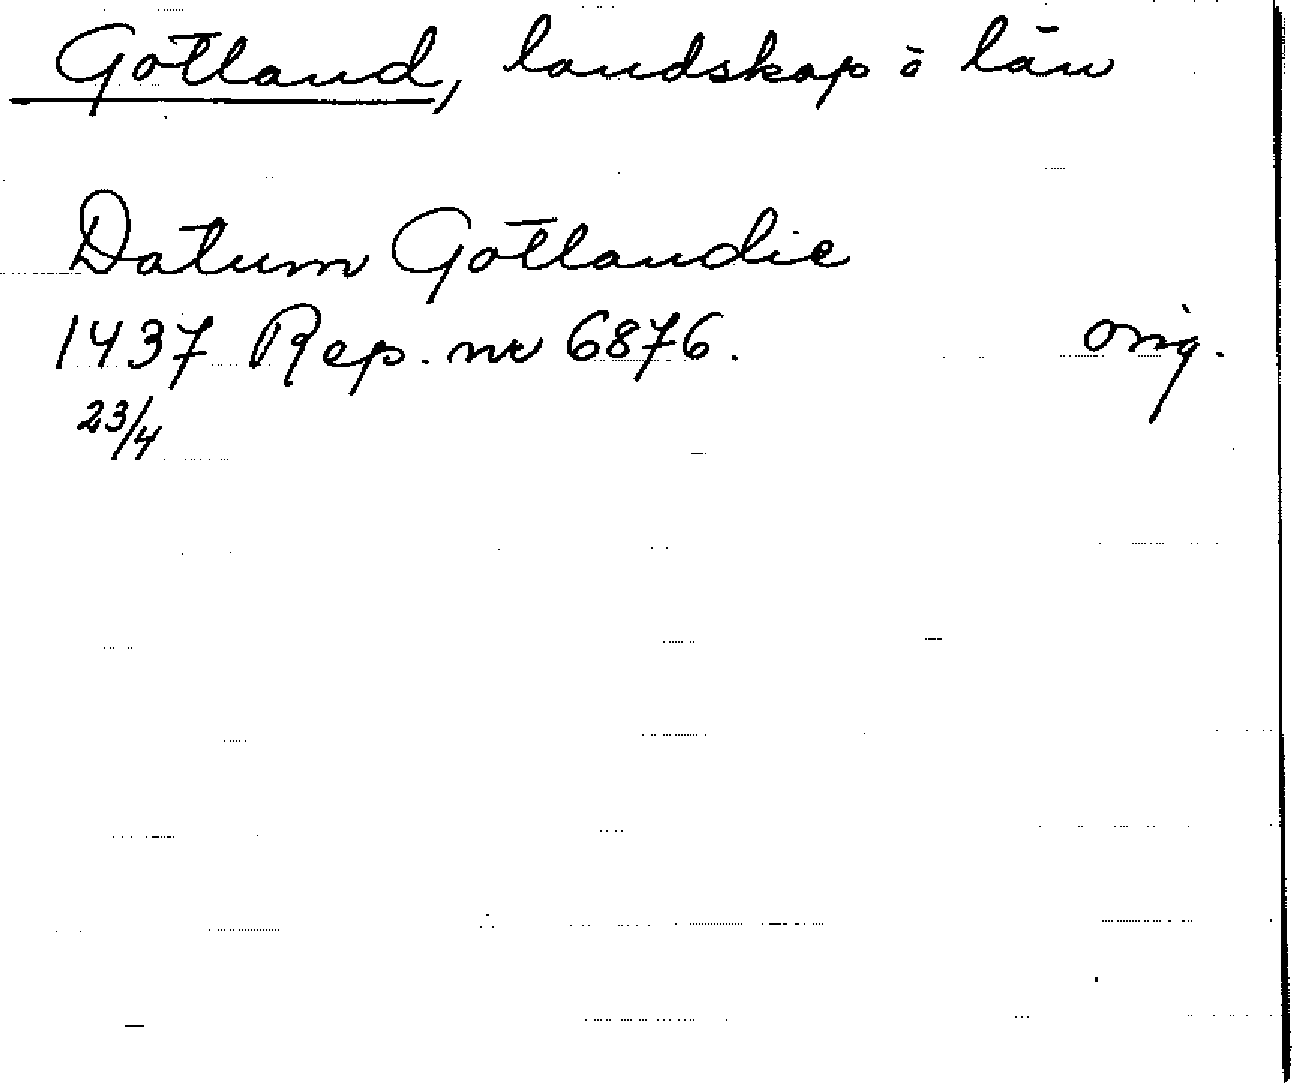 Gotland, landskap o län
Datum Gotlandie
1437 Rep. nr 6876. orig.
23/4